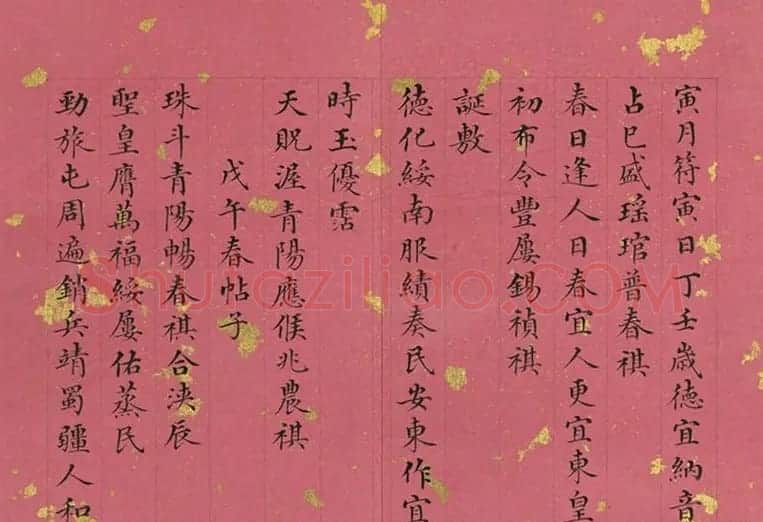 寅月符寅日丁壬歲德宜納音
占巳盛瑤琯普春祺
春日逢人日春宜人更宜東皇
初布令豐屢錫禎祺
誕敷
德化綏南服績奏民安東作宜
時玉優霑
天貺渥青陽應候兆農祺
戊午春帖子
珠斗青陽暢春祺合浹辰
聖皇膺萬福綏屢佑蒸民
勁旅屯周遍銷兵靖蜀疆人和
Shufaziliao.COM